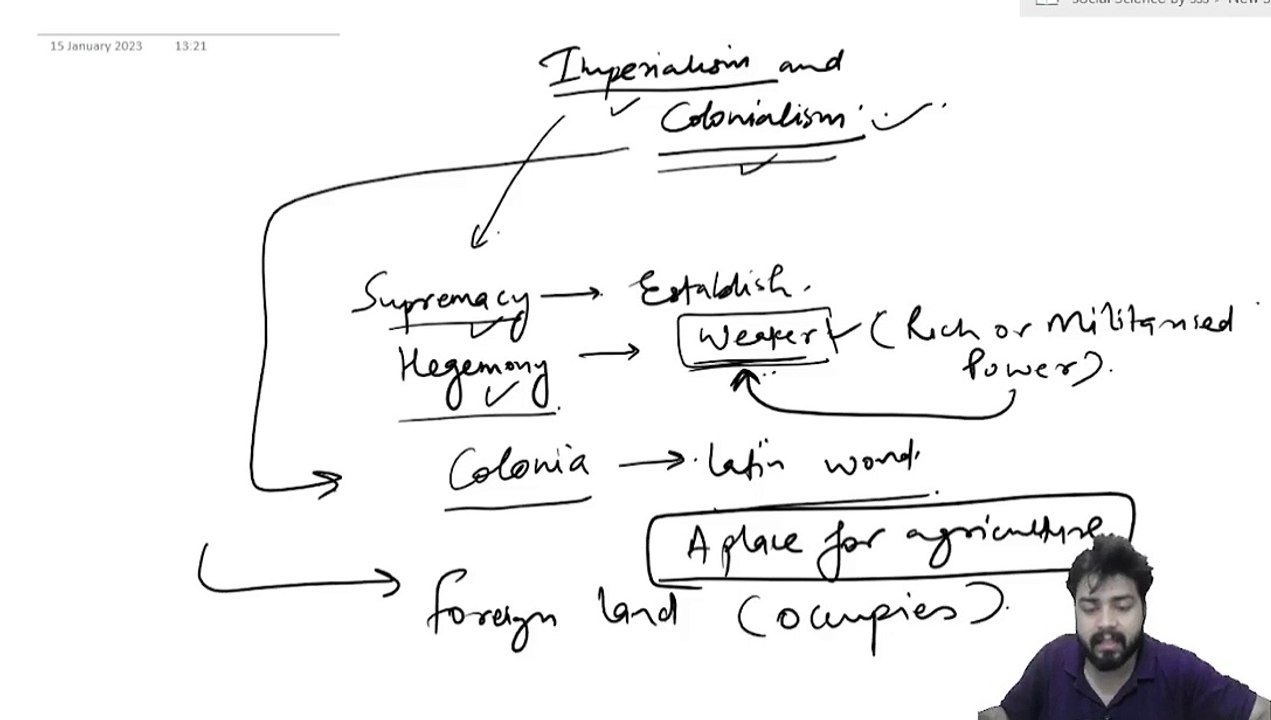 Social Science by sss > New S
15 January 2023 13:21
Imperialism and
Colonialism.
Supremacy → Establish.
Hegemony → Weaker (Rich or Militarised
Power).
Colonia → Latin word.
A place for agriculture
foreign land (occupies).